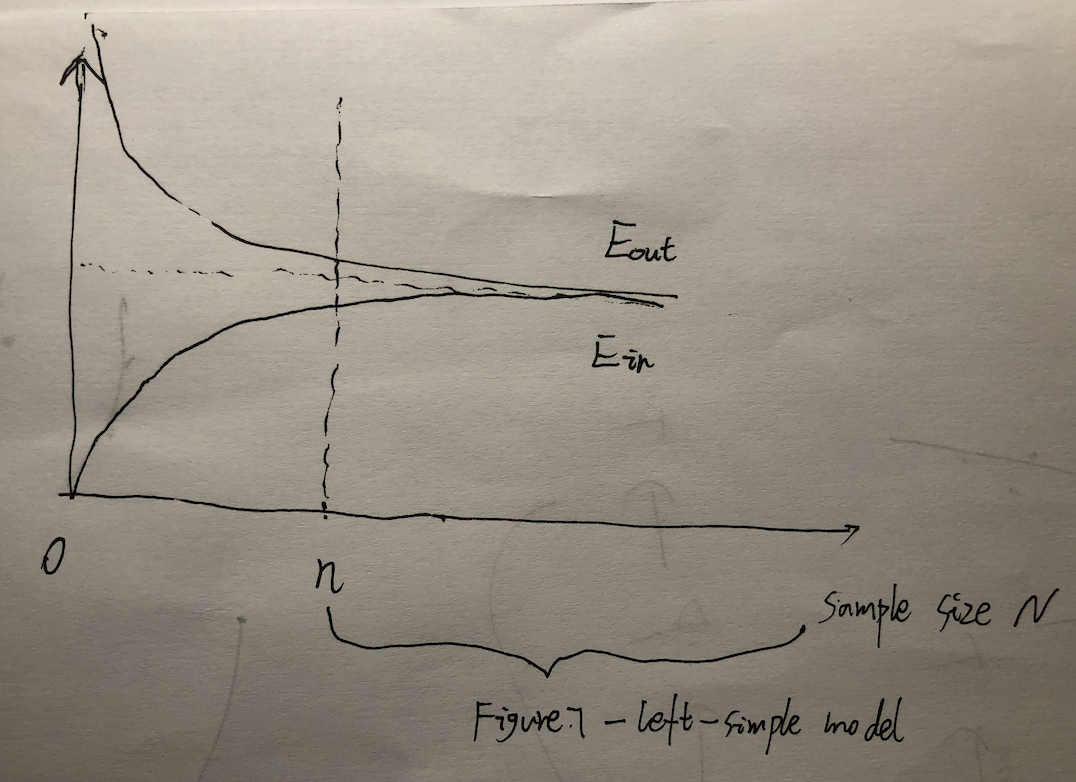 Eout
Ein
0
n
Sample size N
Figure.7 - left-simple model